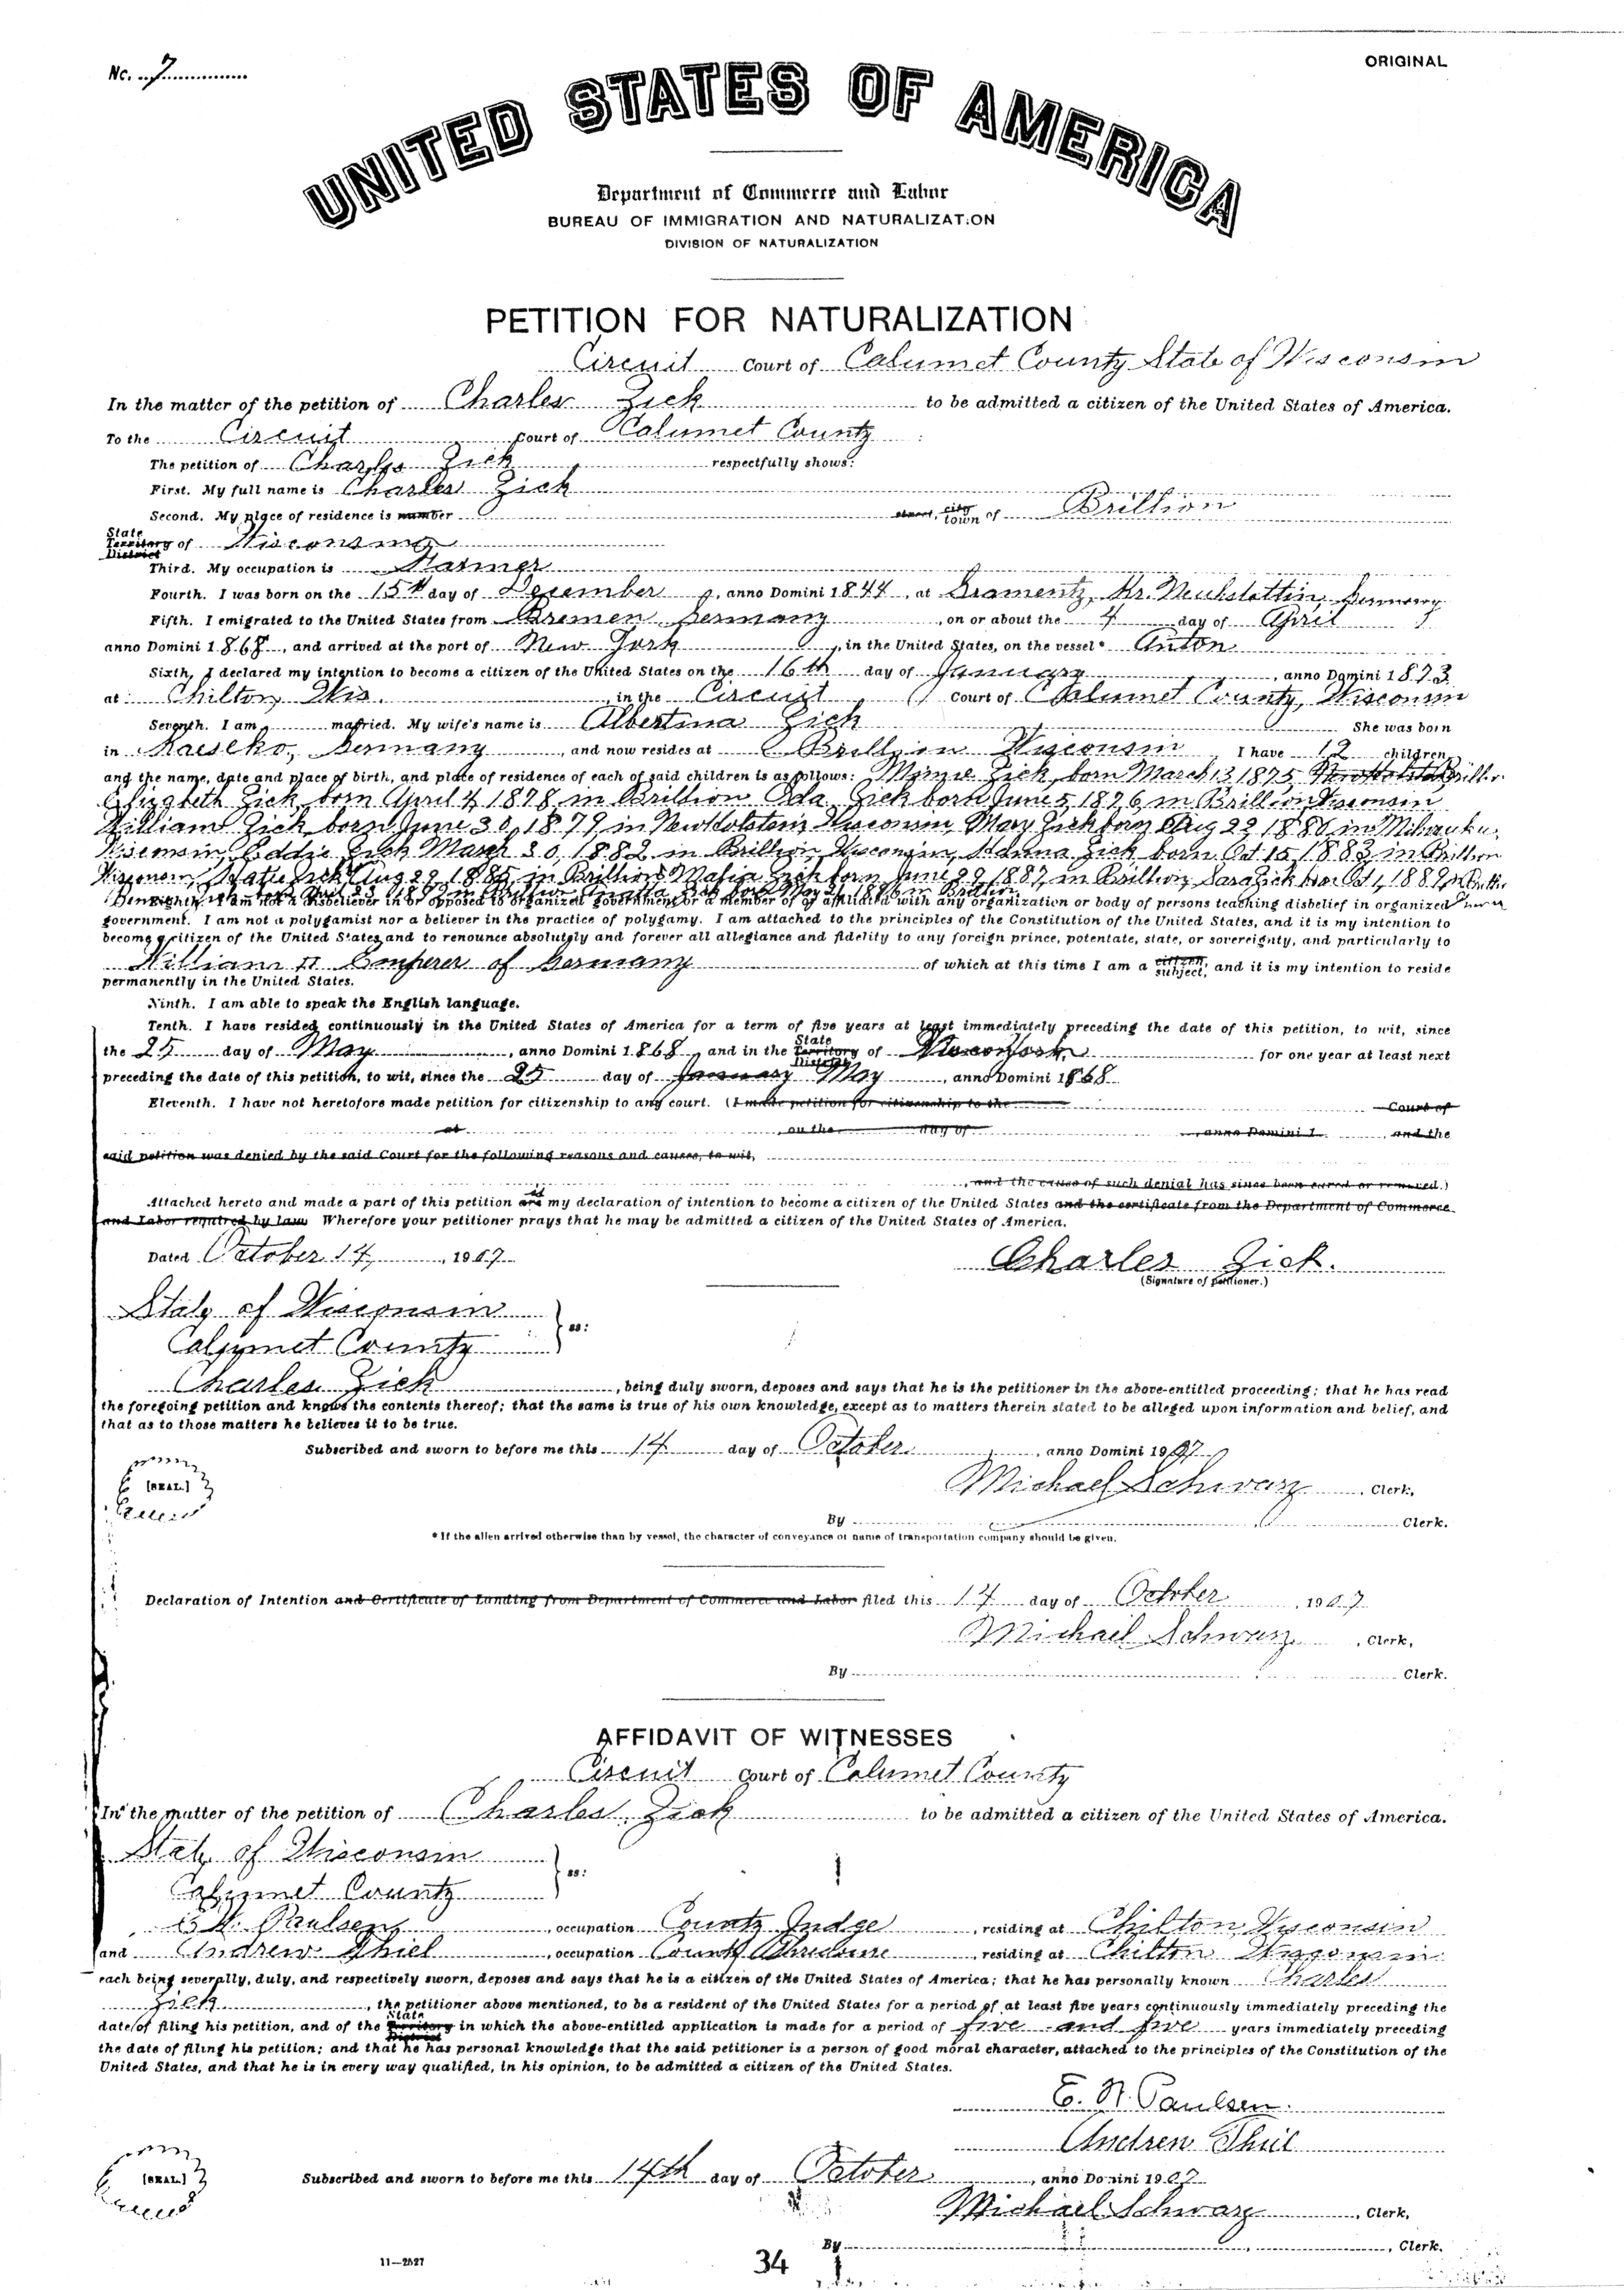 No. 7
ORIGINAL
UNITED STATES OF AMERICA
Department of Commerce and Labor
BUREAU OF IMMIGRATION AND NATURALIZATION
DIVISION OF NATURALIZATION
PETITION FOR NATURALIZATION
Circuit Court of Calumet County State of Wisconsin
In the matter of the petition of Charles Zick to be admitted a citizen of the United States of America.
To the Circuit Court of Calumet County :
The petition of Charles Zick respectfully shows:
First. My full name is Charles Zick
Second. My place of residence is number street, city town of Brillion
State Territory District of Wisconsin
Third. My occupation is Farmer
Fourth. I was born on the 15th day of December, anno Domini 1844, at Gramentz, Kr. Neuhstettin, Germany
Fifth. I emigrated to the United States from Bremen Germany, on or about the 4 day of April
anno Domini 1868, and arrived at the port of New York, in the United States, on the vessel* Anton
Sixth. I declared my intention to become a citizen of the United States on the 16th day of January, anno Domini 1873
at Chilton, Wis. in the Circuit Court of Calumet County, Wisconsin
Seventh. I am married. My wife's name is Albertina Zick She was born
in Germany, and now resides at Brillion Wisconsin I have 12 children,
and the name, date and place of birth, and place of residence of each of said children is as follows: Zick, born March 13 1875
Elizabeth Zick, born April 4 1878 in Brillion Oda Zick born June 5 1876 in Brillion Wisconsin
William Zick, born June 30, 1879, in New Holstein Wisconsin, Mary Zick born Aug 22 188 in
Wisconsin, Eddie Zick March 30, 1882 in Brillion, Wisconsin, Zick born Oct 15 1883 in Brillion
Wisconsin, Zick Aug 29 188 in Brillion Maria Zick born June 29 1887, in Brillion, Sara Zick born Oct 1, 1889, in
Eighth. I am not a disbeliever in or opposed to organized government or a member of or affiliated with any organization or body of persons teaching disbelief in organized
government. I am not a polygamist nor a believer in the practice of polygamy. I am attached to the principles of the Constitution of the United States, and it is my intention to
become a citizen of the United States and to renounce absolutely and forever all allegiance and fidelity to any foreign prince, potentate, state, or sovereignty, and particularly to
William II Emperer of Germany of which at this time I am a citizen, subject, and it is my intention to reside
permanently in the United States.
Ninth. I am able to speak the English language.
Tenth. I have resided continuously in the United States of America for a term of five years at least immediately preceding the date of this petition, to wit, since
the 25 day of May, anno Domini 1868, and in the State Territory District of Wisconsin for one year at least next
preceding the date of this petition, to wit, since the 25 day of January May, anno Domini 1868
Eleventh. I have not heretofore made petition for citizenship to any court. (I made petition for citizenship to the Court of
at on the day of, anno Domini 1, and the
said petition was denied by the said Court for the following reasons and causes, to wit,
, and the cause of such denial has since been cured or removed.)
Attached hereto and made a part of this petition are my declaration of intention to become a citizen of the United States and the certificate from the Department of Commerce
and Labor required by law Wherefore your petitioner prays that he may be admitted a citizen of the United States of America.
Dated October 14, 1907
Charles Zick.
(Signature of petitioner.)
State of Wisconsin
Calumet County } ss:
Charles Zick, being duly sworn, deposes and says that he is the petitioner in the above-entitled proceeding; that he has read
the foregoing petition and knows the contents thereof; that the same is true of his own knowledge, except as to matters therein stated to be alleged upon information and belief, and
that as to those matters he believes it to be true.
Subscribed and sworn to before me this 14 day of October, anno Domini 1907
[SEAL.]
Michael Schwarz, Clerk,
By Clerk.
* If the alien arrived otherwise than by vessel, the character of conveyance or name of transportation company should be given.
Declaration of Intention and Certificate of Landing from Department of Commerce and Labor filed this 14 day of October, 1907
Michael Schwarz, Clerk,
By Clerk.
AFFIDAVIT OF WITNESSES
Circuit Court of Calumet County
In the matter of the petition of Charles Zick to be admitted a citizen of the United States of America.
State of Wisconsin
Calumet County } ss:
Paulsen, occupation County Judge, residing at Chilton Wisconsin
and Andrew Thiel, occupation County, residing at Chilton Wisconsin
each being severally, duly, and respectively sworn, deposes and says that he is a citizen of the United States of America; that he has personally known Charles
Zick, the petitioner above mentioned, to be a resident of the United States for a period of at least five years continuously immediately preceding the
date of filing his petition, and of the State Territory District in which the above-entitled application is made for a period of five and five years immediately preceding
the date of filing his petition; and that he has personal knowledge that the said petitioner is a person of good moral character, attached to the principles of the Constitution of the
United States, and that he is in every way qualified, in his opinion, to be admitted a citizen of the United States.
Paulsen.
Andrew Thiel
[SEAL.]
Subscribed and sworn to before me this 14th day of October, anno Domini 1907
Michael Schwarz, Clerk,
By, Clerk.
11—2527
34